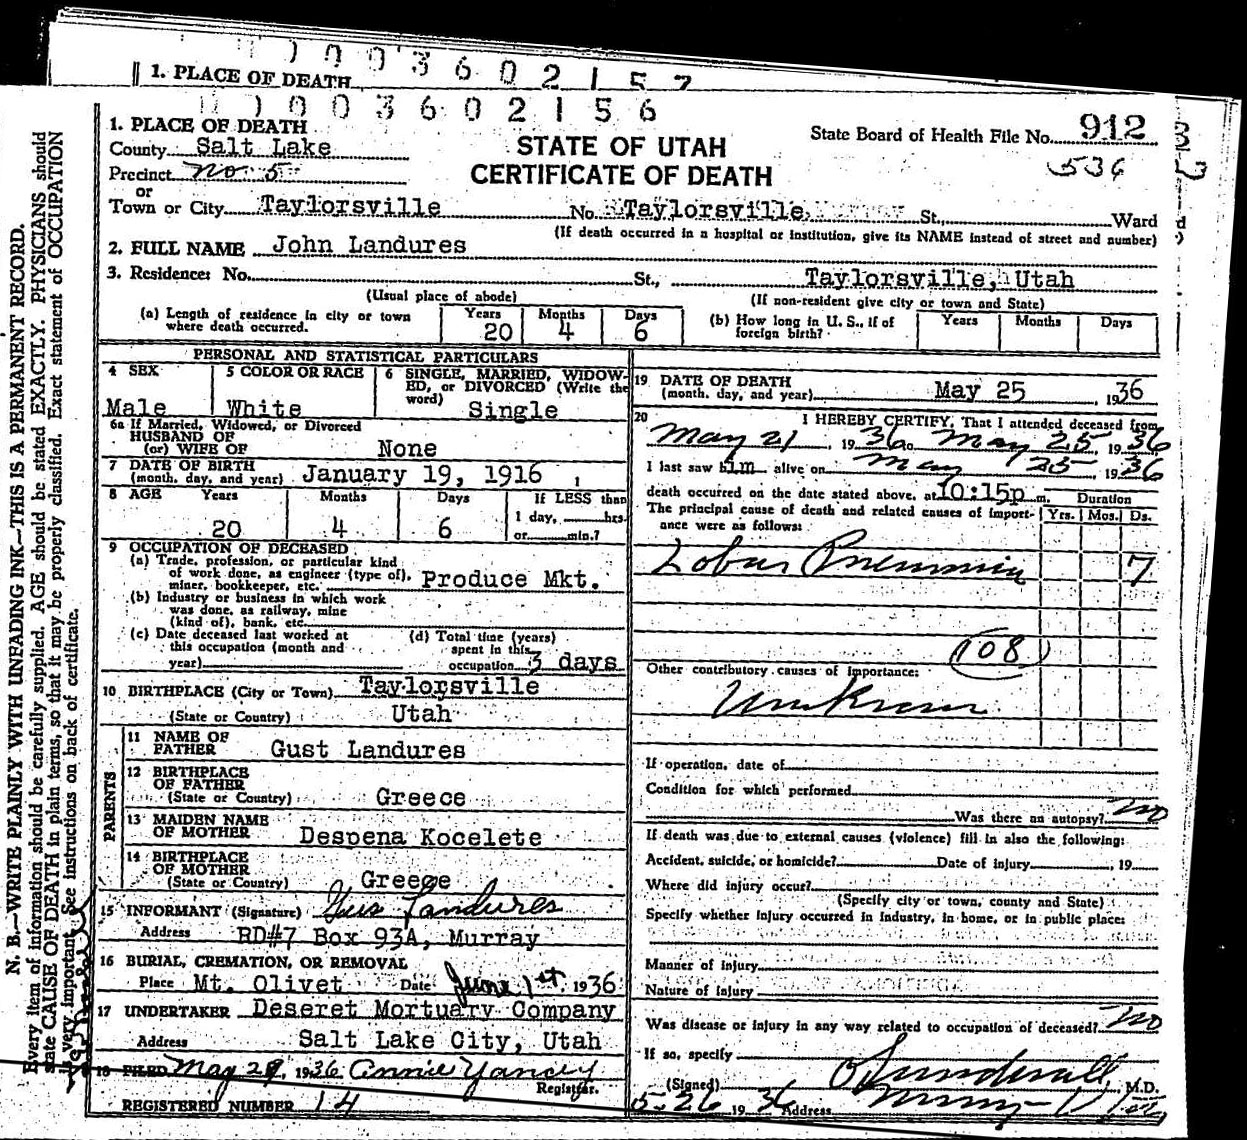 0003602157
1. PLACE OF DEATH
0003602156
1. PLACE OF DEATH
County Salt Lake
Precinct No 5
or
Town or City Taylorsville No. Taylorsville St., Ward
(If death occurred in a hospital or institution, give its NAME instead of street and number)
STATE OF UTAH
CERTIFICATE OF DEATH
State Board of Health File No. 912
536
2. FULL NAME John Landures
3. Residence: No. St., Taylorsville, Utah
(Usual place of abode) (If non-resident give city or town and State)
(a) Length of residence in city or town where death occurred. Years 20 Months 4 Days 6
(b) How long in U. S., if of foreign birth? Years Months Days
PERSONAL AND STATISTICAL PARTICULARS
4 SEX Male
5 COLOR OR RACE White
6 SINGLE, MARRIED, WIDOW-
ED, or DIVORCED (Write the
word) Single
6a If Married, Widowed, or Divorced
HUSBAND OF
(or) WIFE OF None
7 DATE OF BIRTH
(month, day, and year) January 19, 1916
8 AGE Years 20 Months 4 Days 6 If LESS than
1 day, hrs.
or min.?
9 OCCUPATION OF DECEASED
(a) Trade, profession, or particular kind
of work done, as engineer (type of),
miner, bookkeeper, etc. Produce Mkt.
(b) Industry or business in which work
was done, as railway, mine
(kind of), bank, etc.
(c) Date deceased last worked at
this occupation (month and
year)
(d) Total time (years)
spent in this
occupation 3 days
10 BIRTHPLACE (City or Town) Taylorsville
(State or Country) Utah
PARENTS
11 NAME OF
FATHER Gust Landures
12 BIRTHPLACE
OF FATHER
(State or Country) Greece
13 MAIDEN NAME
OF MOTHER Despena Kocelete
14 BIRTHPLACE
OF MOTHER
(State or Country) Greece
15 INFORMANT (Signature) Gus Landures
Address RD#7 Box 93A, Murray
16 BURIAL, CREMATION, OR REMOVAL
Place Mt. Olivet Date June 1st, 1936
17 UNDERTAKER Deseret Mortuary Company
Address Salt Lake City, Utah
18 FILED May 29, 1936 Annie Yancey
Registrar.
REGISTERED NUMBER 14
19 DATE OF DEATH
(month, day, and year) May 25, 1936
20 I HEREBY CERTIFY, That I attended deceased from
May 21, 1936 to May 25, 1936
I last saw him alive on May 25, 1936
death occurred on the date stated above, at 10:15p m.
Duration
The principal cause of death and related causes of import-
ance were as follows: Yrs. Mos. Ds.
Lobar Pneumonia 7
108
Other contributory causes of importance:
Unknown
If operation, date of
Condition for which performed
Was there an autopsy? no
If death was due to external causes (violence) fill in also the following:
Accident, suicide, or homicide? Date of injury, 19
Where did injury occur?
(Specify city or town, county and State)
Specify whether injury occurred in industry, in home, or in public place:
Manner of injury
Nature of injury
Was disease or injury in any way related to occupation of deceased? no
If so, specify
(Signed) M.D.
5-26 1936 Address Murray Utah
N. B.—WRITE PLAINLY WITH UNFADING INK—THIS IS A PERMANENT RECORD.
Every item of information should be carefully supplied. AGE should be stated EXACTLY. PHYSICIANS should
state CAUSE OF DEATH in plain terms, so that it may be properly classified. Exact statement of OCCUPATION
is very important. See instructions on back of certificate.